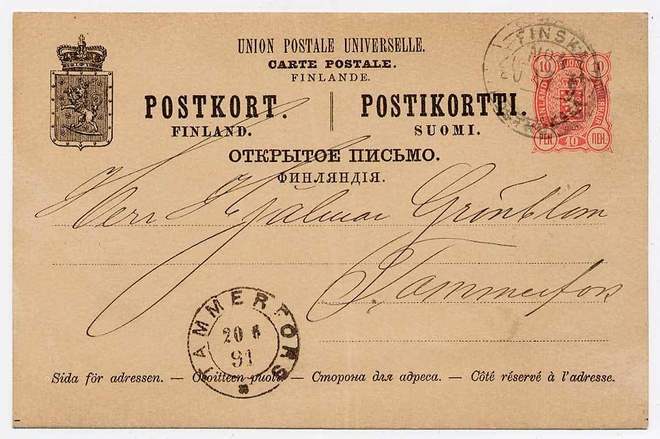 UNION POSTALE UNIVERSELLE.
CARTE POSTALE.
FINLANDE.
POSTKORT. POSTIKORTTI.
FINLAND. SUOMI.
ОТКРЫТОЕ ПИСЬМО.
ФИНЛЯНДІЯ.
FINSKA
10 10
PEN 10 ПЕН
Herr Hjalmar Grönblom
Tammerfors
TAMMERFORS
20 5
91
Sida för adressen. — Osoitteen puoli. — Сторона для адреса. — Côté réservé à l'adresse.